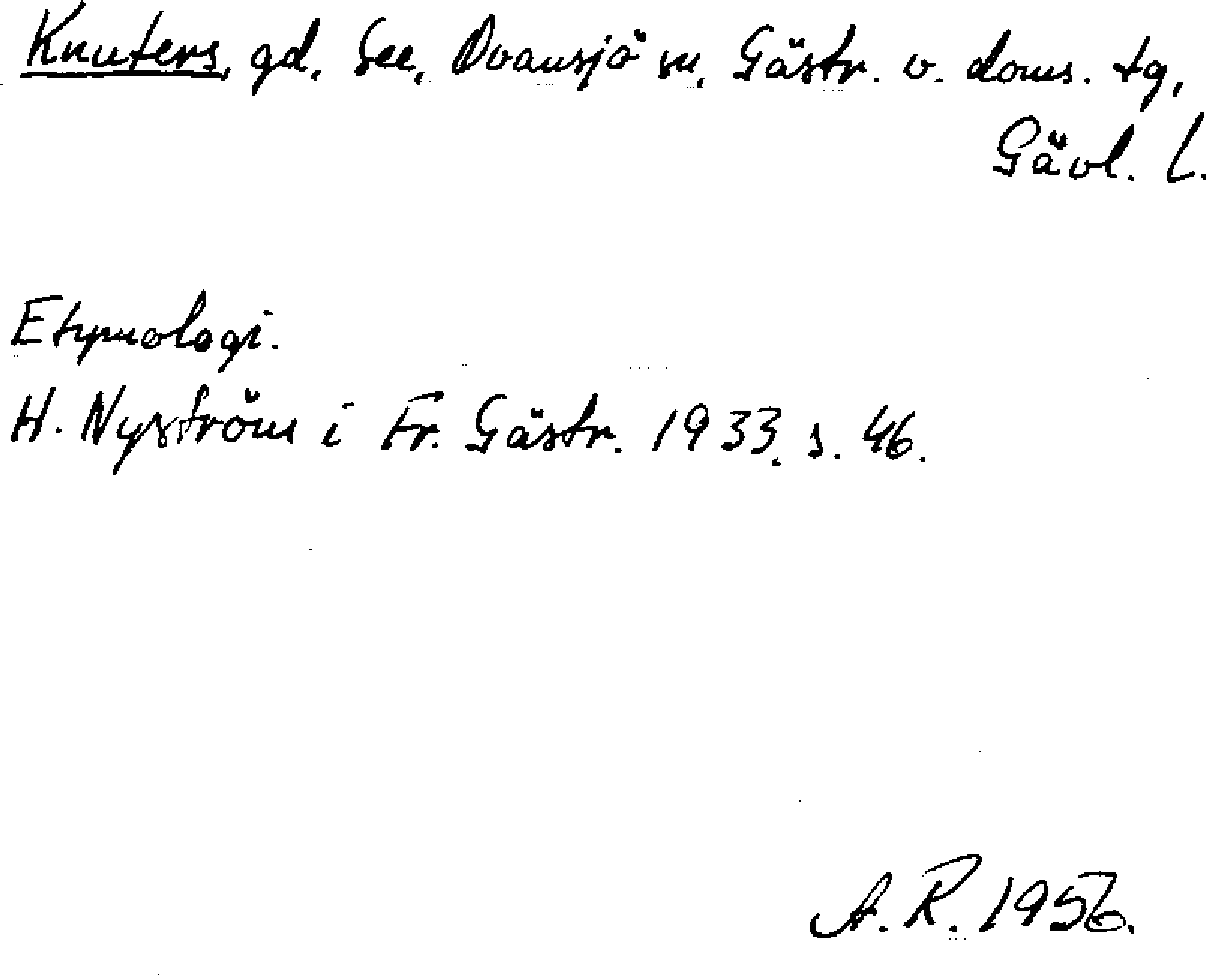 Knuters, gd, See, Ovansjö sn, Gästr. v. doms. tg,
Gävl. l.
Etymologi.
H. Nyström i Fr. Gästr. 1933. s. 46.
A. R. 1956.